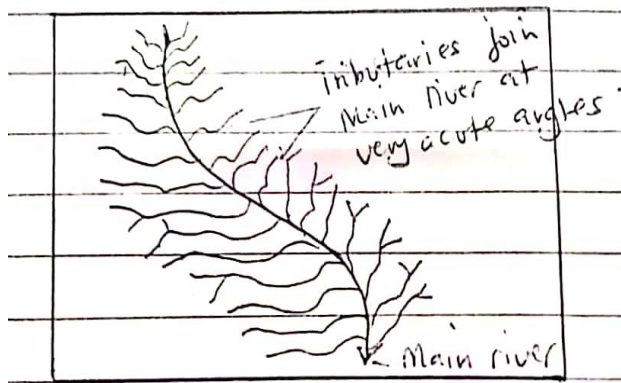 tributaries join
Main river at
very acute angles.
Main river